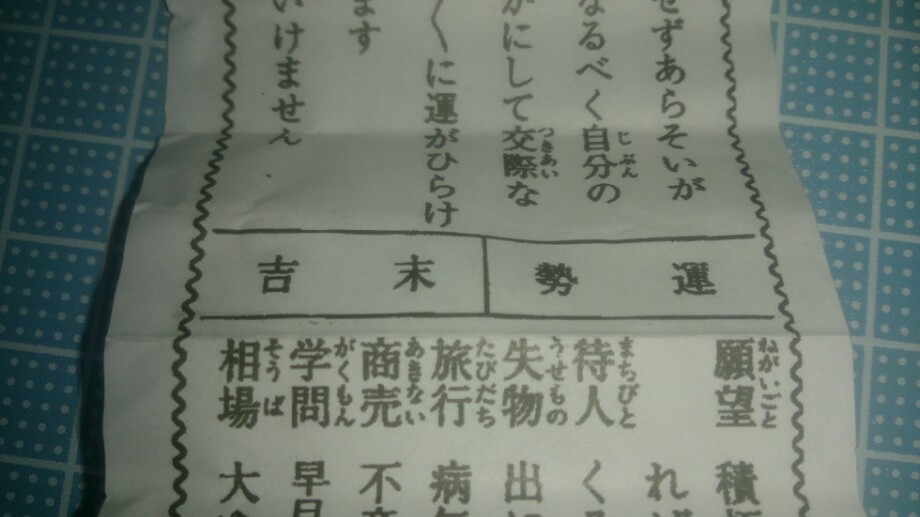 せずあらそいが
なるべく自分の
かにして交際な
〱に運がひらけ
ます
いけません
運勢 末吉
願望 積
れ
待人 く
失物 出
旅行 病
商売 不
学問 早
相場 大